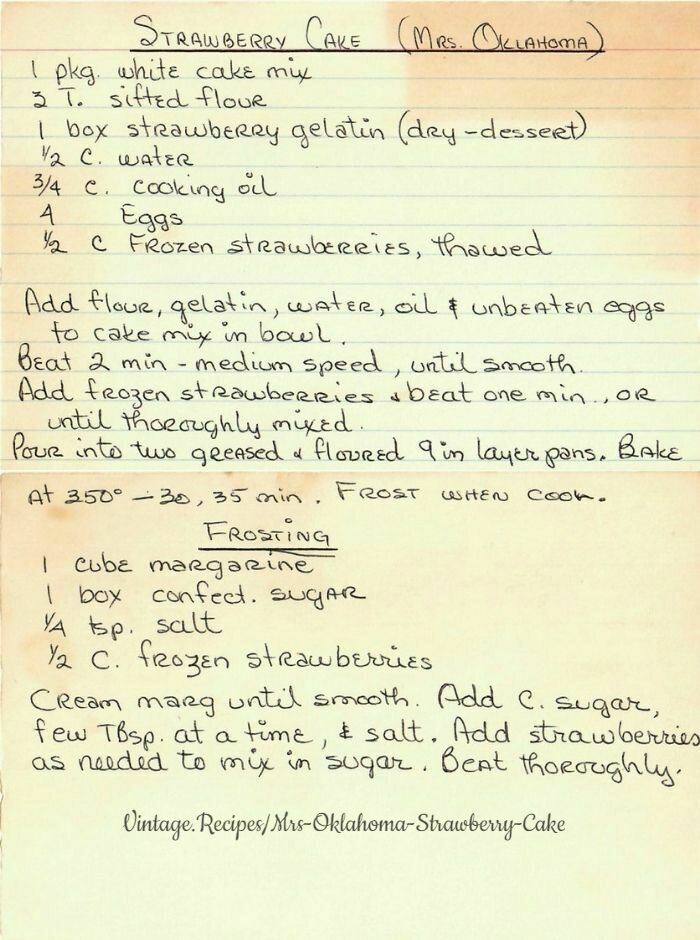 STRAWBERRY CAKE (MRS. OKLAHOMA)
1 pkg. white cake mix
3 T. sifted flour
1 box strawberry gelatin (dry-dessert)
1/2 C. water
3/4 C. cooking oil
4 Eggs
1/2 C Frozen strawberries, thawed
Add flour, gelatin, water, oil & unbeaten eggs
to cake mix in bowl.
Beat 2 min - medium speed, until smooth.
Add frozen strawberries & beat one min., or
until thoroughly mixed.
Pour into two greased & floured 9 in layer pans. Bake
At 350° - 30, 35 min. Frost when cool.
FROSTING
1 cube margarine
1 box confect. sugar
1/4 tsp. salt
1/2 C. frozen strawberries
Cream marg until smooth. Add C. sugar,
few TBsp. at a time, & salt. Add strawberries
as needed to mix in sugar. Beat thoroughly.
Vintage.Recipes/Mrs-Oklahoma-Strawberry-Cake